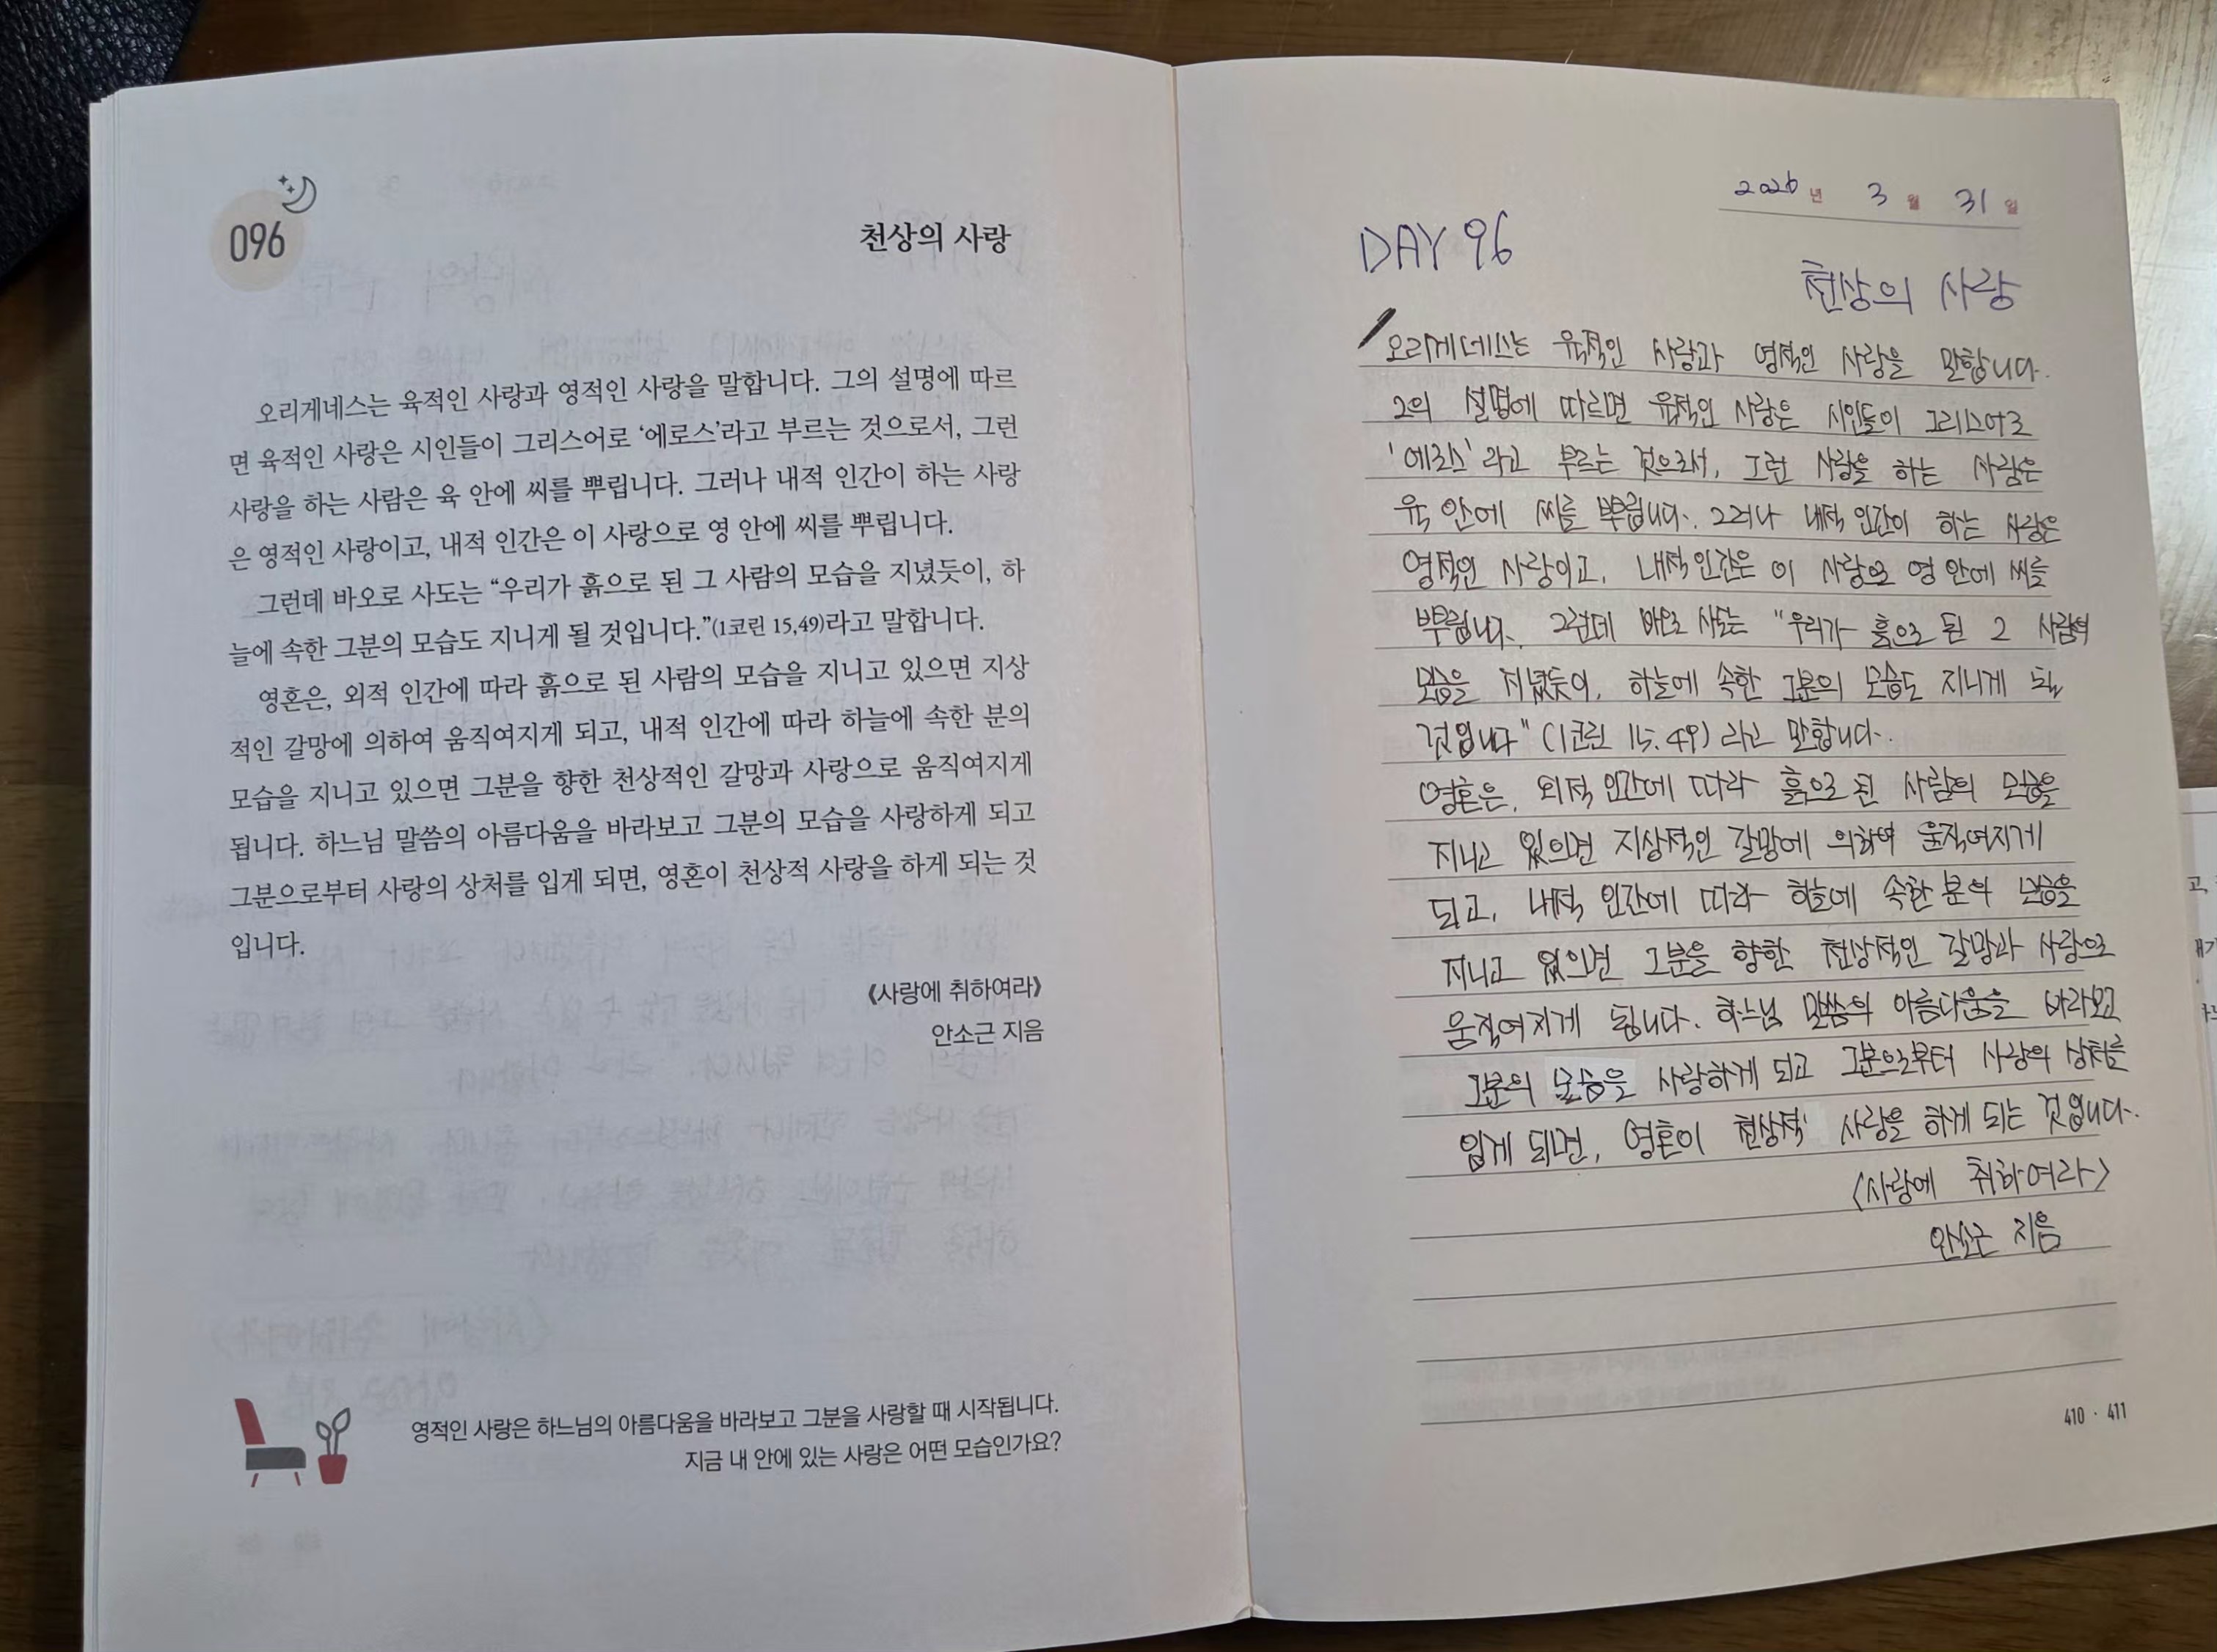 096
천상의 사랑
오리게네스는 육적인 사랑과 영적인 사랑을 말합니다. 그의 설명에 따르
면 육적인 사랑은 시인들이 그리스어로 ‘에로스’라고 부르는 것으로서, 그런
사랑을 하는 사람은 육 안에 씨를 뿌립니다. 그러나 내적 인간이 하는 사랑
은 영적인 사랑이고, 내적 인간은 이 사랑으로 영 안에 씨를 뿌립니다.
그런데 바오로 사도는 “우리가 흙으로 된 그 사람의 모습을 지녔듯이, 하
늘에 속한 그분의 모습도 지니게 될 것입니다.”(1코린 15,49)라고 말합니다.
영혼은, 외적 인간에 따라 흙으로 된 사람의 모습을 지니고 있으면 지상
적인 갈망에 의하여 움직여지게 되고, 내적 인간에 따라 하늘에 속한 분의
모습을 지니고 있으면 그분을 향한 천상적인 갈망과 사랑으로 움직여지게
됩니다. 하느님 말씀의 아름다움을 바라보고 그분의 모습을 사랑하게 되고
그분으로부터 사랑의 상처를 입게 되면, 영혼이 천상적 사랑을 하게 되는 것
입니다.
《사랑에 취하여라》
안소근 지음
영적인 사랑은 하느님의 아름다움을 바라보고 그분을 사랑할 때 시작됩니다.
지금 내 안에 있는 사랑은 어떤 모습인가요?
2026년 3월 31일
DAY 96
천상의 사랑
오리게네스는 육적인 사랑과 영적인 사랑을 말합니다.
그의 설명에 따르면 육적인 사랑은 시인들이 그리스어로
'에로스'라고 부르는 것으로서, 그런 사랑을 하는 사람은
육 안에 씨를 뿌립니다. 그러나 내적 인간이 하는 사랑은
영적인 사랑이고, 내적 인간은 이 사랑으로 영 안에 씨를
뿌립니다. 그런데 바오로 사도는 "우리가 흙으로 된 그 사람의
모습을 지녔듯이, 하늘에 속한 그분의 모습도 지니게 될
것입니다" (1코린 15.49) 라고 말합니다.
영혼은, 외적 인간에 따라 흙으로 된 사람의 모습을
지니고 있으면 지상적인 갈망에 의하여 움직여지게
되고, 내적 인간에 따라 하늘에 속한 분의 모습을
지니고 있으면 그분을 향한 천상적인 갈망과 사랑으로
움직여지게 됩니다. 하느님 말씀의 아름다움을 바라보고
그분의 모습을 사랑하게 되고 그분으로부터 사랑의 상처를
입게 되면, 영혼이 천상적 사랑을 하게 되는 것입니다.
<사랑에 취하여라>
안소근 지음
410 · 411